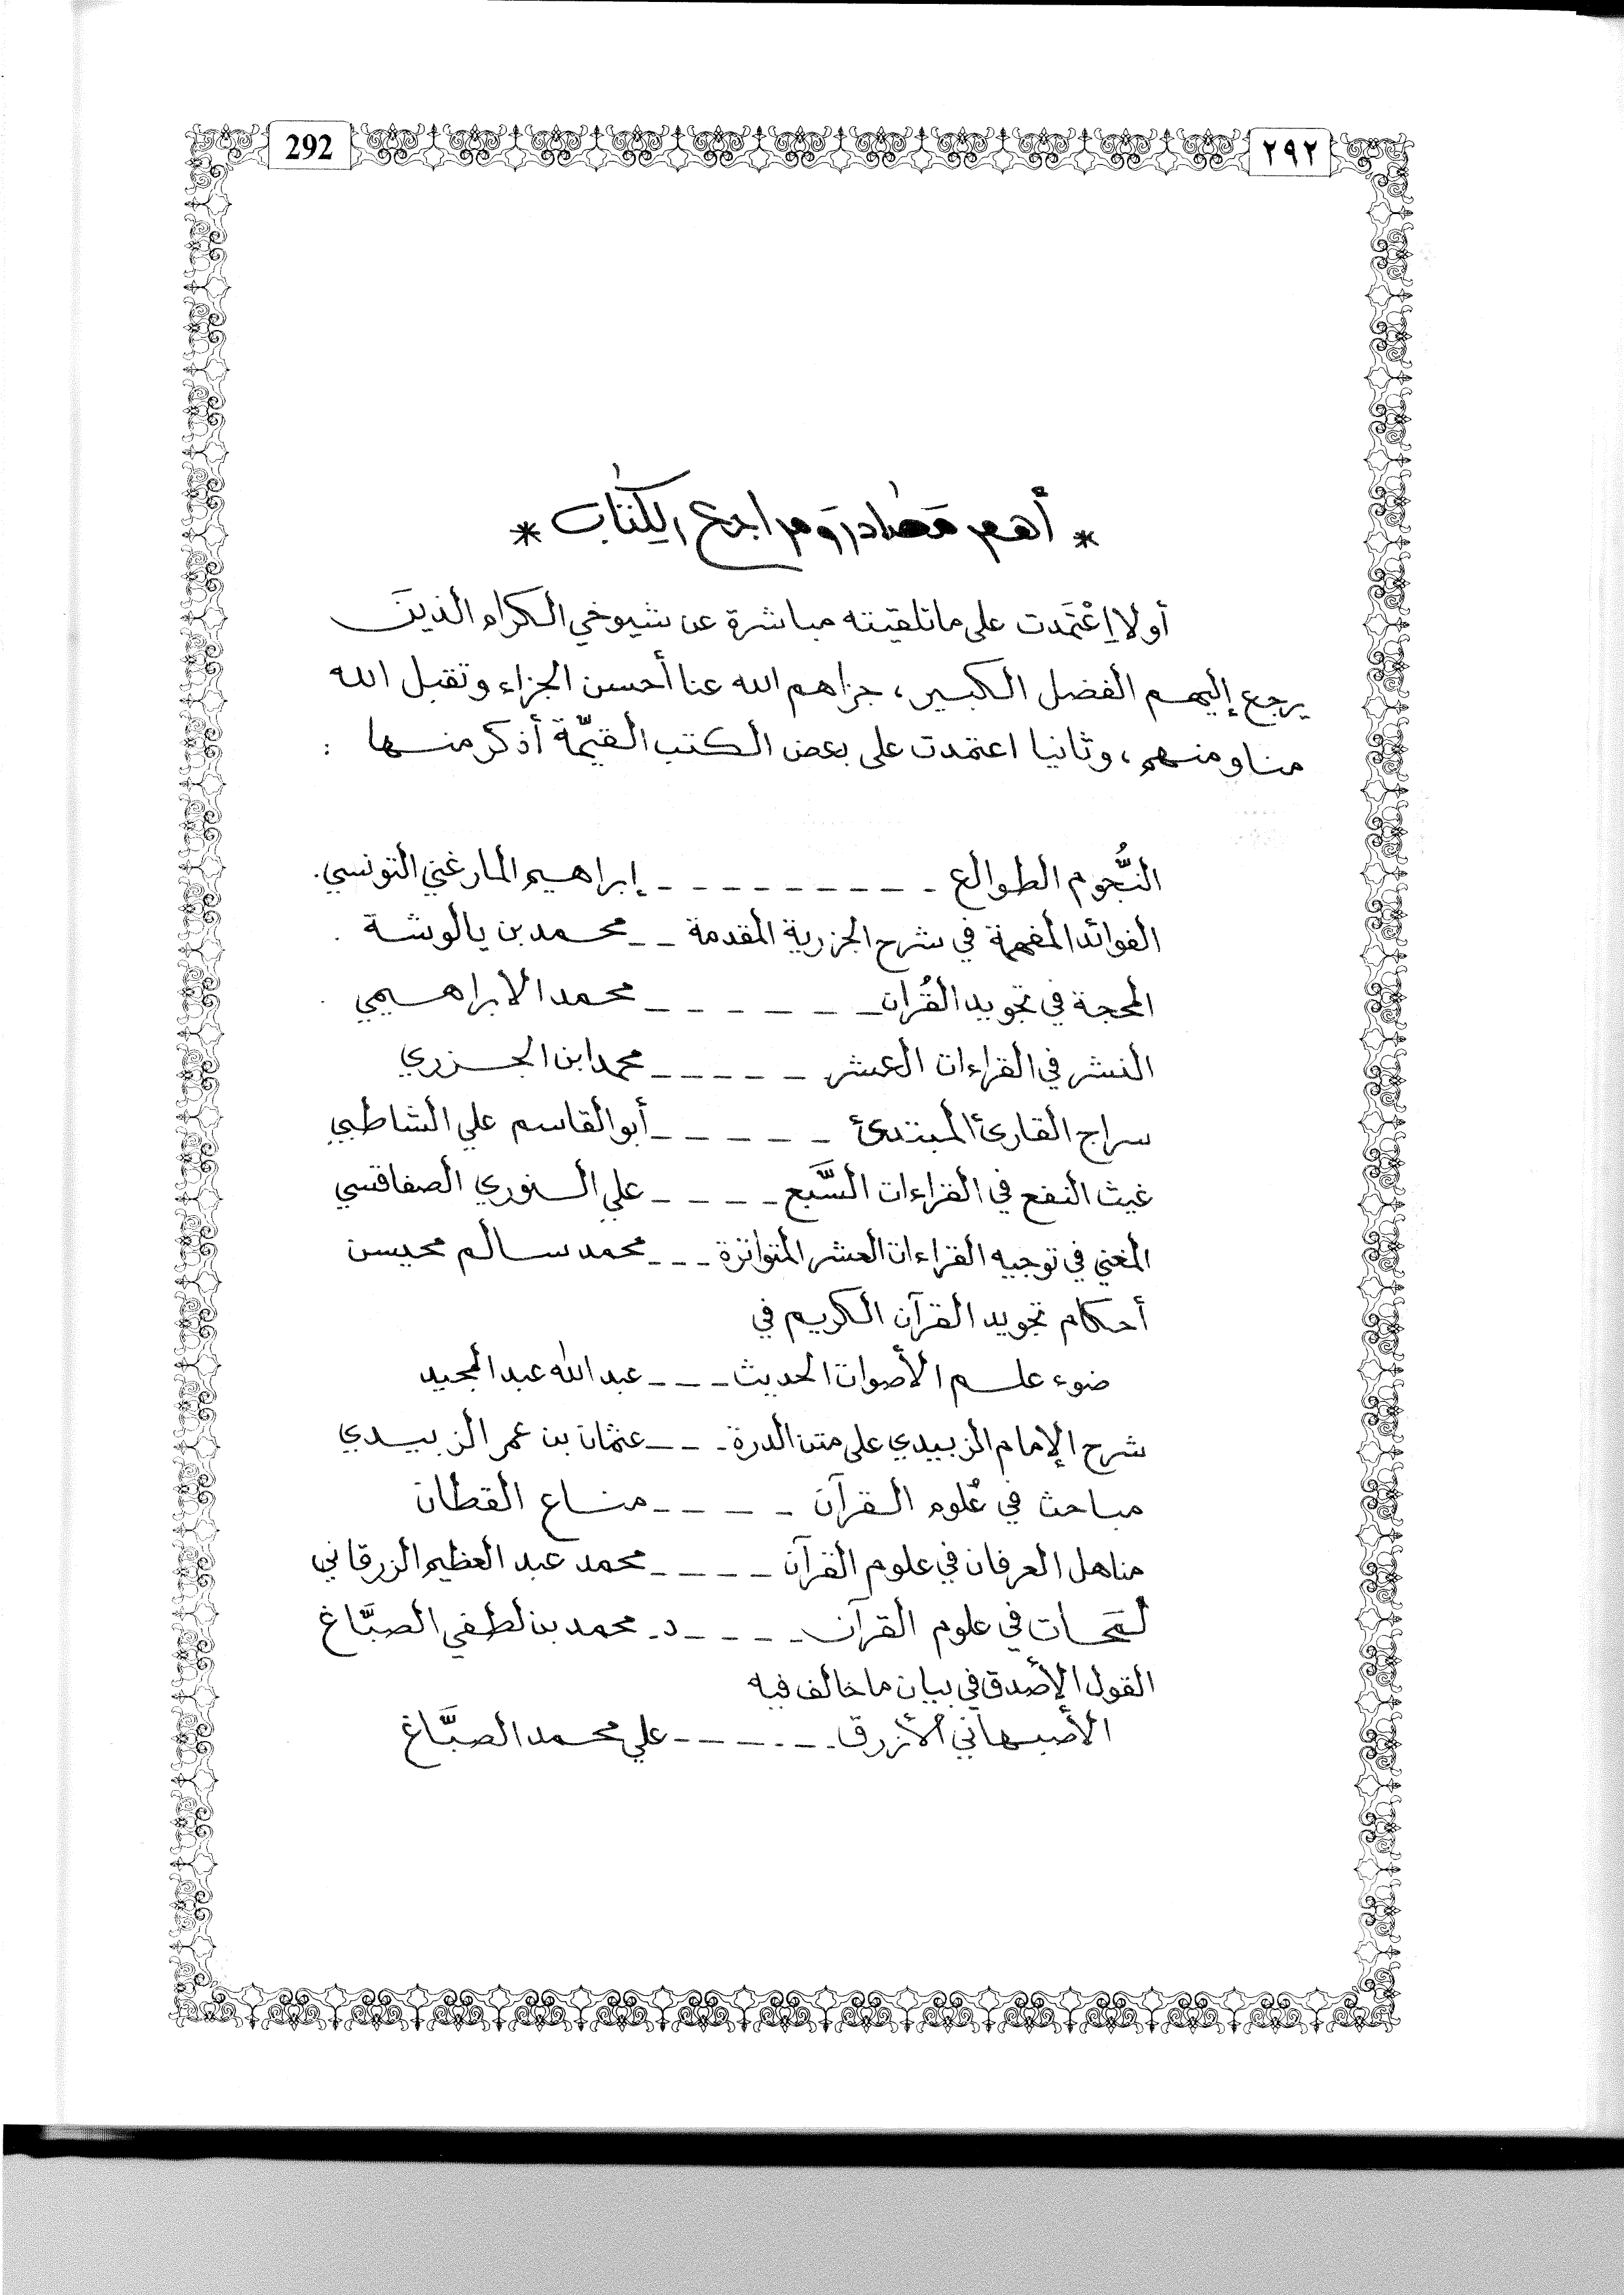 292 ٢٩٢
* أهم مصادر ومراجع الكتاب *
أولا إعْتَمدت على ما تلقيته مباشرة عن شيوخي الكرام الذينَ
يرجع إليهم الفضل الكبير، جزاهم الله عنا أحسن الجزاء وتقبل الله
منا ومنهم، وثانيا اعتمدت على بعض الكتب القيّمة أذكر منها :
النُّجوم الطوالع - - - - - - - - - إبراهيم المارغني التونسي.
الفوائد المفهمة في شرح الجزرية المقدمة - - محمد بن يالوشة .
المحجة في تجويد القُرآن - - - - - - محمد الابراهيمي .
النشر في القراءات العشر - - - - - محمد ابن الجزري
سراج القارئ المبتدئ - - - - - أبو القاسم علي الشاطبي
غيث النفع في القراءات السَّبع - - - - علي النوري الصفاقسي
المغني في توجيه القراءات العشر المتواترة - - - محمد سالم محيسن
أحكام تجويد القرآن الكريم في
ضوء علم الأصوات الحديث - - - عبد الله عبد المجيد
شرح الإمام الزبيدي على متن الدرة - - - عثمان بن عمر الزبيدي
مباحث في عُلوم القرآن - - - - مناع القطان
مناهل العرفان في علوم القرآن - - - - محمد عبد العظيم الزرقاني
لمَحات في علوم القرآن - - - - د. محمد بن لطفي الصبَّاغ
القول الأصدق في بيان ما خالف فيه
الأصبهاني الأزرق - - - - - - علي محمد الصبَّاغ